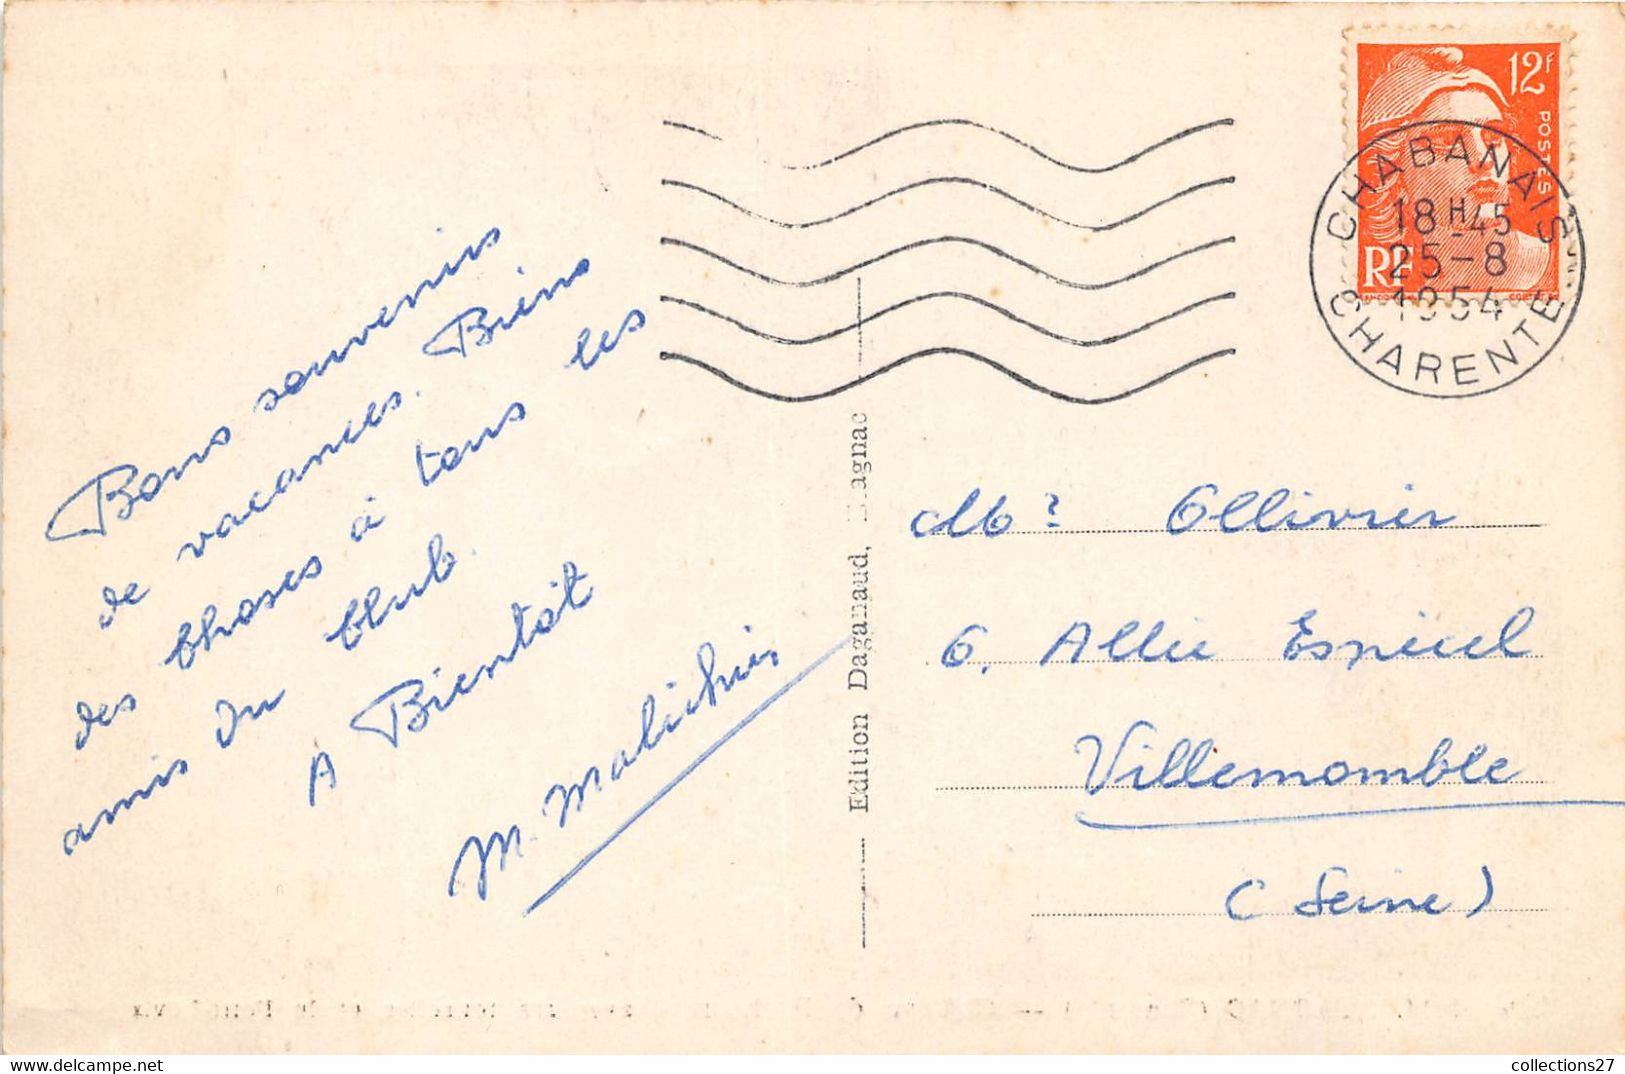 Bons souvenirs
de vacances. Biens
des choses à tous les
amis du Club.
A Bientôt
M. Malichier
Edition Daganaud,
12F
POSTES
RF
CHABANAIS
18H-45
25-8
1954
CHARENTE
Mr Ollivier
6. Allée Espicel
Villemomble
(Seine)
collections27